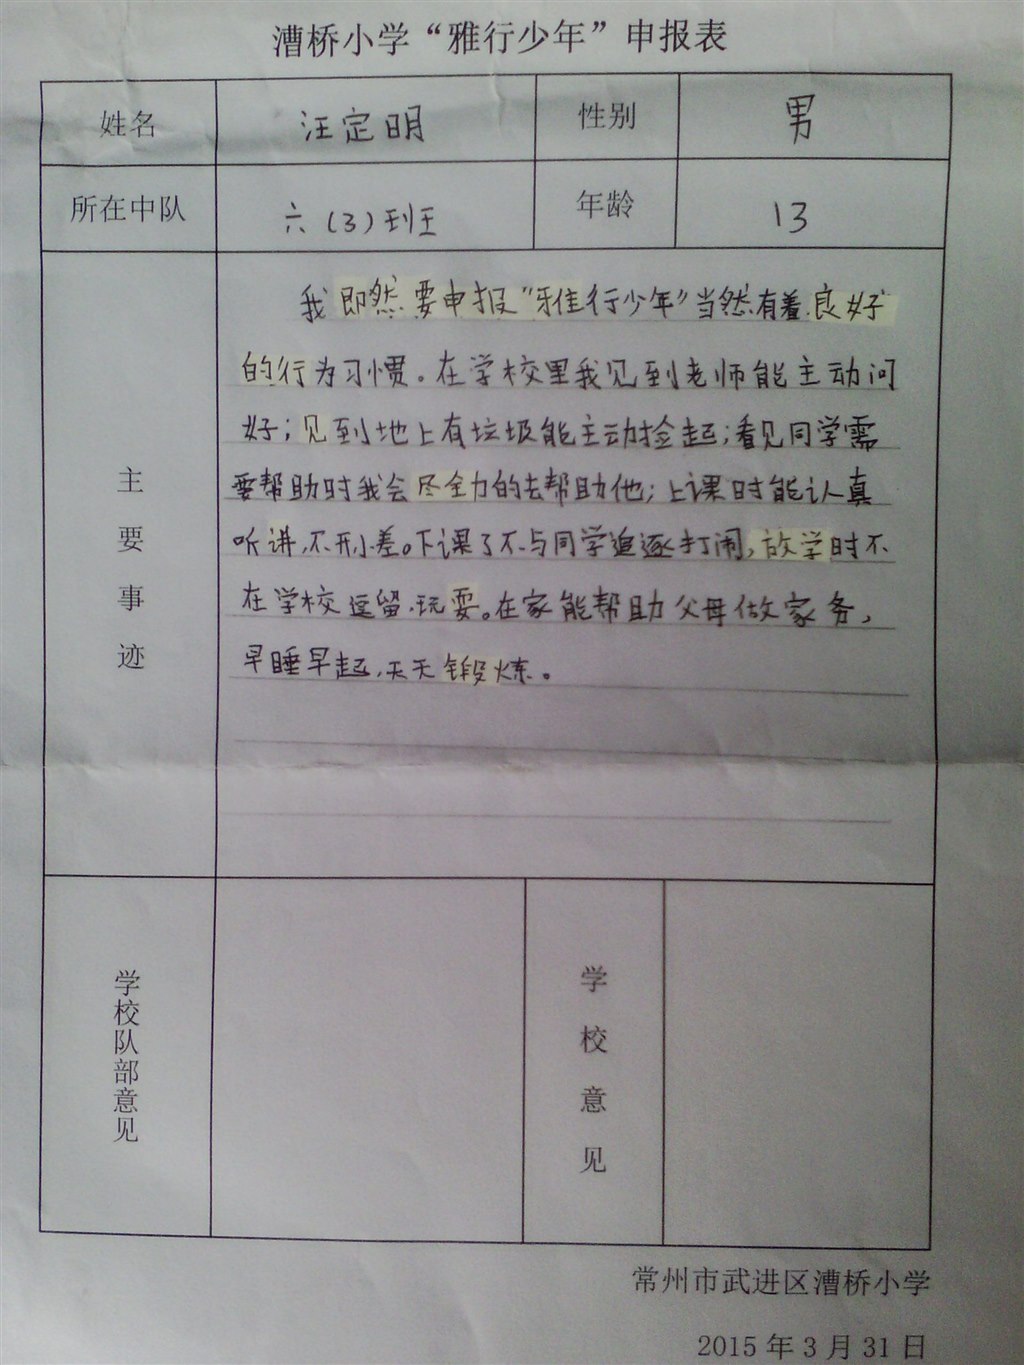 漕桥小学“雅行少年”申报表
姓名 汪定明 性别 男
所在中队 六（3）班 年龄 13
主要事迹
我即然要申报“雅行少年”当然有着良好
的行为习惯。在学校里我见到老师能主动问
好；见到地上有垃圾能主动捡起；看见同学需
要帮助时我会尽全力的去帮助他；上课时能认真
听讲，不开小差。下课了不与同学追逐打闹，放学时不
在学校逗留、玩耍。在家能帮助父母做家务，
早睡早起，天天锻炼。
学校队部意见
学校意见
常州市武进区漕桥小学
2015年3月31日